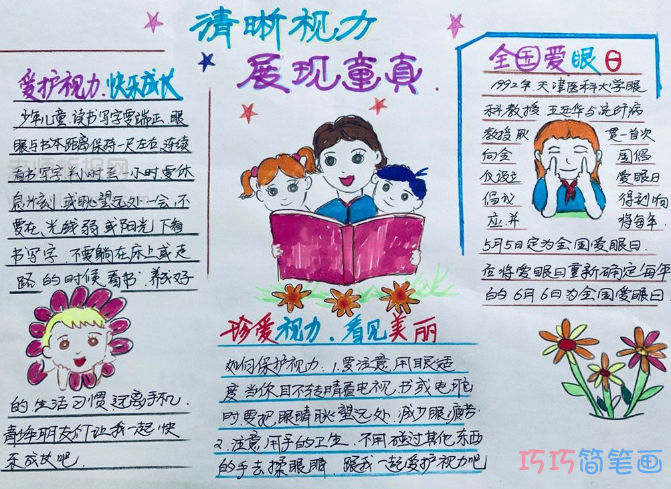 清晰视力
展现童真
爱护视力、快乐成长
少年儿童读书写字要端正、眼
眼与书本距离保持一尺左右,连续
看书写字半小时至一小时要休
息片刻或眺望远处一会,不
要在光线弱或阳光下看
书写字,不要躺在床上或走
路的时候看书.养成好
的生活习惯远离手机.
青少年朋友们让我一起快
乐成长吧.
珍爱视力、看见美丽
如何保护视力:1.要注意用眼适
度当你目不转睛看电视、书或电脑
时要把眼睛眺望远处.减少眼疲劳.
2.注意用手的卫生.不用碰过其他东西
的手去揉眼睛.跟我一起爱护视力吧
全国爱眼日
1992年.天津医科大学眼
科教授 王延华与流行病
教授耿贯一首次
向全国倡
仪设立爱眼日
倡议得到响
应.并将每年.
5月5日定为全国爱眼日.
后将爱眼日重新确定每年
的6月6日为全国爱眼日
巧巧简笔画